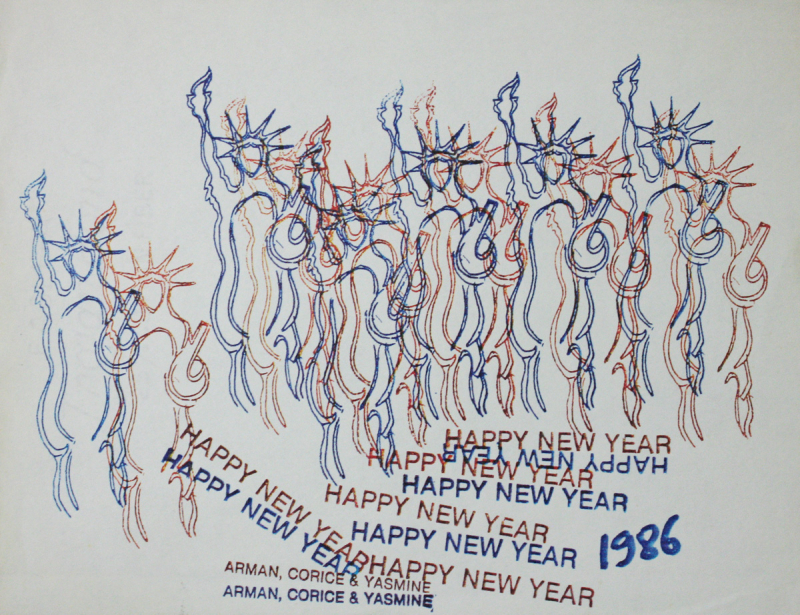 HAPPY NEW YEAR
HAPPY NEW YEAR
HAPPY NEW YEAR
HAPPY NEW YEAR
HAPPY NEW YEAR
HAPPY NEW YEAR
HAPPY NEW YEAR
HAPPY NEW YEAR
1986
HAPPY NEW YEAR
ARMAN, CORICE & YASMINE
ARMAN, CORICE & YASMINE